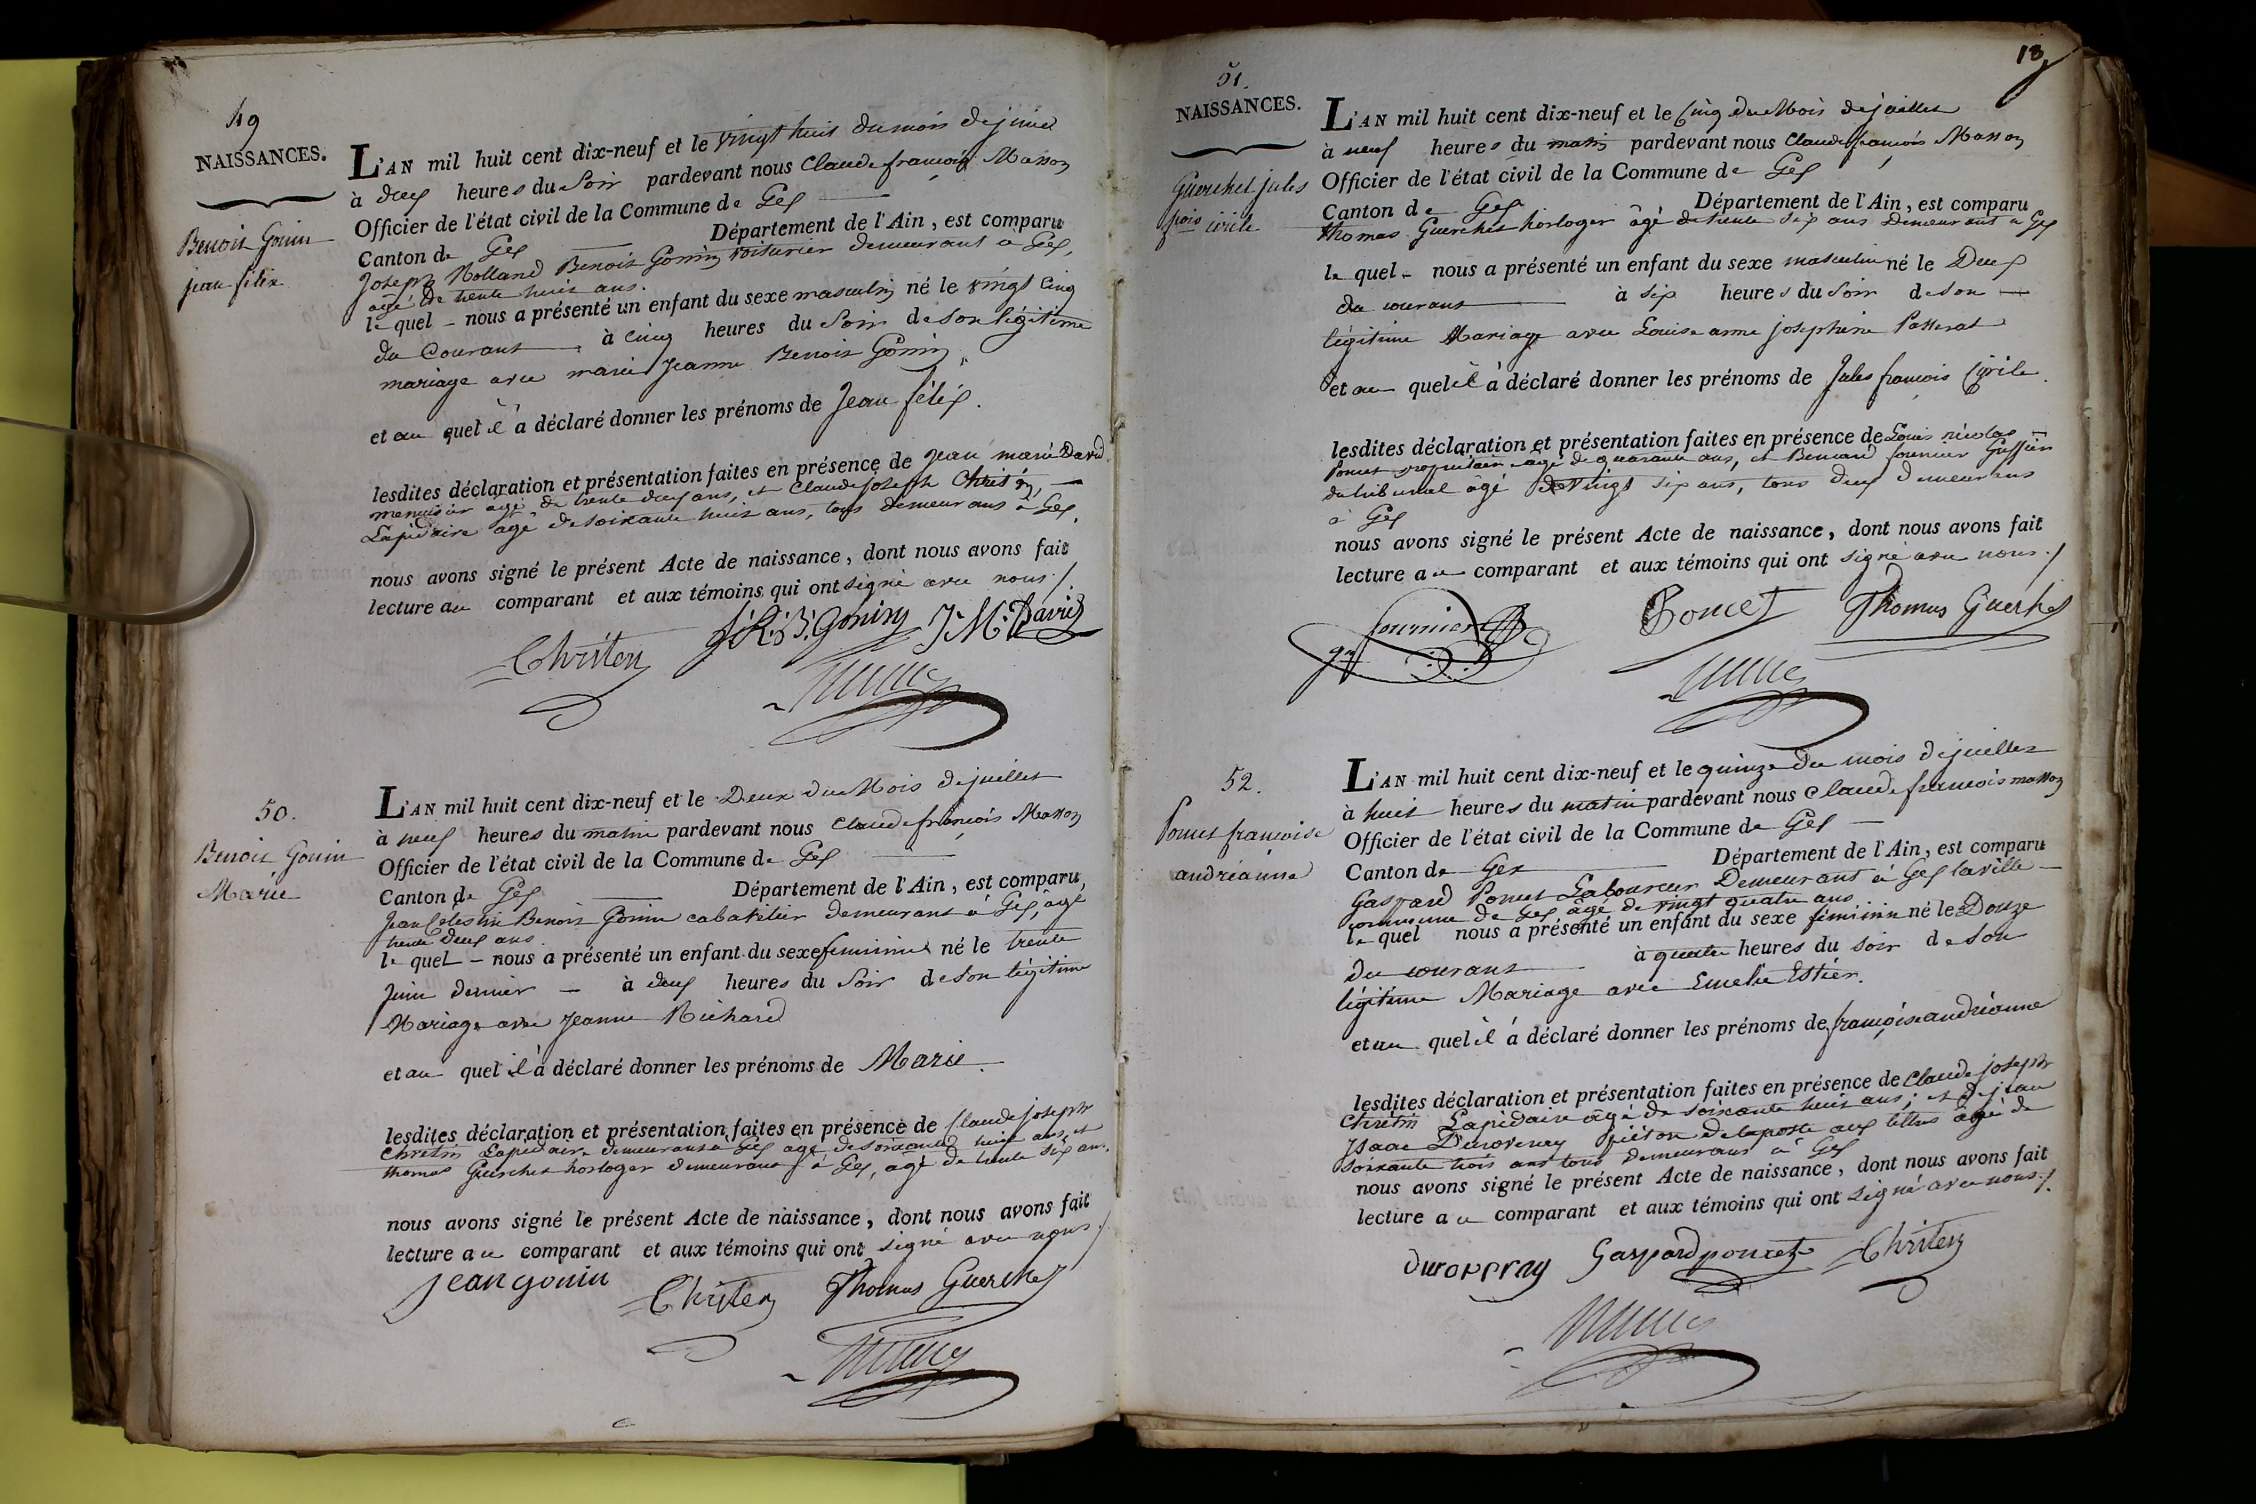 49
NAISSANCES.
Benoit Gonin
jean félix
L'AN mil huit cent dix-neuf et le vingt huit du mois de juin
à deux heures du Soir pardevant nous Claude françois Masson
Officier de l'état civil de la Commune de Gex
Canton de Gex Département de l'Ain, est comparu
Joseph Rolland Benoit Gonin voiturier demeurant à Gex,
âgé de trente huit ans.
le quel - nous a présenté un enfant du sexe masculin né le vingt Cinq
du Courant à cinq heures du Soir de son légitime
mariage avec marie Jeanne Benoit Gonin
et au quel il a déclaré donner les prénoms de Jean félix.
lesdites déclaration et présentation faites en présence de Jean marie David
menuisier âgé de trente deux ans, et Claude Joseph Chrétin,
Lapidaire âgé de soixante huit ans, tous demeurans à Gex.
nous avons signé le présent Acte de naissance, dont nous avons fait
lecture au comparant et aux témoins qui ont signé avec nous./.
J: R: B: Gonin J. M. David
Chriten
50.
Benoit Gonin
Marie
L'AN mil huit cent dix-neuf et le Deux du Mois de juillet
à neuf heures du matin pardevant nous Claude françois Masson
Officier de l'état civil de la Commune de Gex
Canton de Gex Département de l'Ain, est comparu,
Jean Célestin Benoit Gonin cabaretier demeurant à Gex, âgé
trente deux ans.
le quel - nous a présenté un enfant du sexe feminin né le trente
Juin dernier - à deux heures du Soir de son légitime
Mariage avec Jeanne Richard
et au quel il a déclaré donner les prénoms de Marie.
lesdites déclaration et présentation faites en présence de Claude joseph
Chrétin Lapidaire demeurant à Gex âgé de soixante huit ans, et
thomas Guerchet horloger demeurant à Gex, âgé de trente six ans.
nous avons signé le présent Acte de naissance, dont nous avons fait
lecture au comparant et aux témoins qui ont signé avec nous./
Jean gonin Chriten Thomas Guerchet
18
51.
NAISSANCES.
Guerchet jules
fois cirile
L'AN mil huit cent dix-neuf et le Cinq du Mois de juillet
à neuf heures du matin pardevant nous Claude françois Masson
Officier de l'état civil de la Commune de Gex
Canton de Gex Département de l'Ain, est comparu
thomas Guerchet horloger âgé de trente six ans Demeurant à Gex
le quel - nous a présenté un enfant du sexe masculin né le Deux
du courant à six heures du Soir de son
légitime Mariage avec Louise anne josephine Passerat
et au quel il a déclaré donner les prénoms de Jules françois Cirile.
lesdites déclaration et présentation faites en présence de Louis nicolas
Poncet propriétaire âgé de quarante ans, et Bernard fournier Greffier
du tribunal âgé de vingt six ans, tous deux demeurans
à Gex
nous avons signé le présent Acte de naissance, dont nous avons fait
lecture au comparant et aux témoins qui ont signé avec nous./
fournier Poncet Thomas Guerchet
52.
Poncet françoise
andrianne
L'AN mil huit cent dix-neuf et le quinze du mois de juillet
à huit heures du matin pardevant nous Claude françois masson
Officier de l'état civil de la Commune de Gex
Canton de Gex Département de l'Ain, est comparu
Gaspard Poncet Laboureur Demeurant à Gex la ville
commune de Gex âgé de vingt quatre ans.
le quel nous a présenté un enfant du sexe féminin né le Douze
du courant à quatre heures du soir de son
légitime Mariage avec Emelie Estier.
et au quel il a déclaré donner les prénoms de françoise andrianne
lesdites déclaration et présentation faites en présence de Claude joseph
Chrétin Lapidaire âgé de soixante huit ans; et de jean
Isaac Duroveray piéton de la poste aux lettres âgé de
soixante trois ans tous demeurans à Gex
nous avons signé le présent Acte de naissance, dont nous avons fait
lecture au comparant et aux témoins qui ont signé avec nous./.
Duroveray Gaspard poncet Chriten